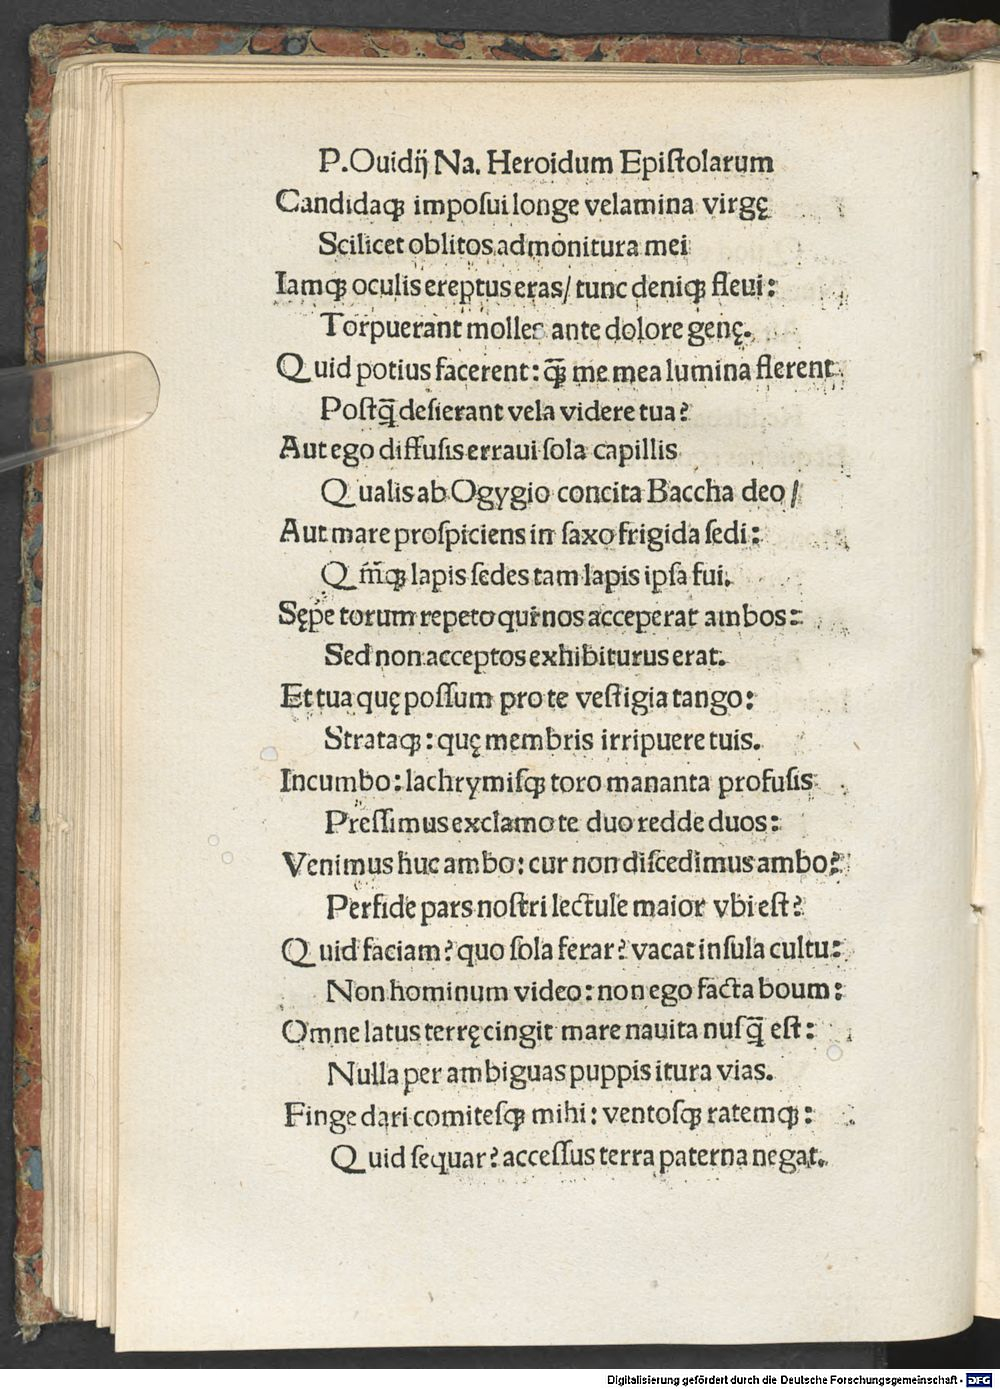 P. Ouidij Na. Heroidum Epistolarum
Candidaqꝫ imposui longe velamina virgę
Scilicet oblitos admonitura mei
Iamqꝫ oculis ereptus eras/ tunc deniqꝫ fleui:
Torpuerant molles ante dolore genę.
Quid potius facerent: q̄ꝫ me mea lumina flerent
Postq̄ desierant vela videre tua?
Aut ego diffusis erraui sola capillis
Qualis ab Ogygio concita Baccha deo/
Aut mare prospiciens in saxo frigida sedi:
Qm̄qꝫ lapis sedes tam lapis ipsa fui.
Sępe torum repeto qui nos acceperat ambos:
Sed non acceptos exhibiturus erat.
Et tua quę possum pro te vestigia tango:
Strataqꝫ: quę membris irripuere tuis.
Incumbo: lachrymisqꝫ toro mananta profusis
Pressimus exclamo te duo redde duos:
Venimus huc ambo: cur non discedimus ambo?
Perfide pars nostri lectule maior vbi est?
Quid faciam? quo sola ferar? vacat insula cultu:
Non hominum video: non ego facta boum:
Omne latus terrę cingit mare nauita nusq̄ est:
Nulla per ambiguas puppis itura vias.
Finge dari comitesqꝫ mihi: ventosqꝫ ratemqꝫ:
Quid sequar? accessus terra paterna negat.
Digitalisierung gefördert durch die Deutsche Forschungsgemeinschaft - DFG